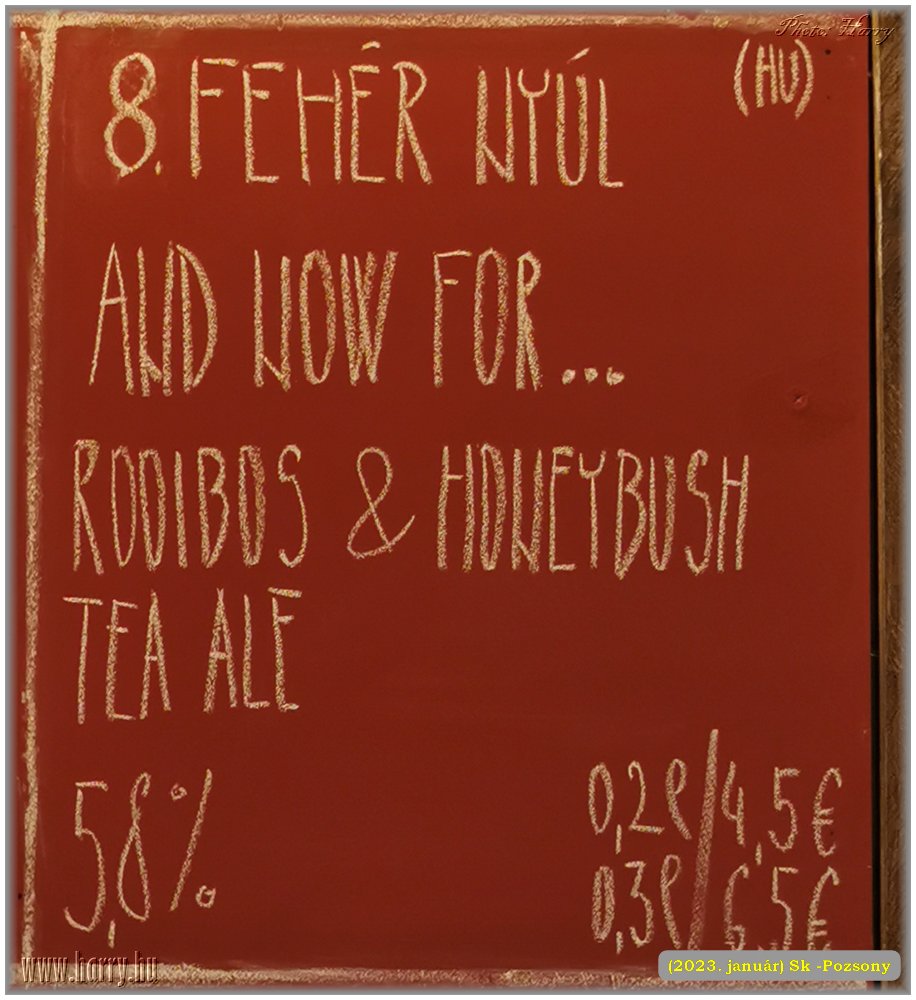 Photo: Harry
8. FEHÉR NYÚL (HU)
AND NOW FOR...
ROOIBOS & HONEYBUSH
TEA ALE
5,8%
0,2l/4,5€
0,3l/6,5€
www.horry.hu
(2023. január) Sk -Pozsony